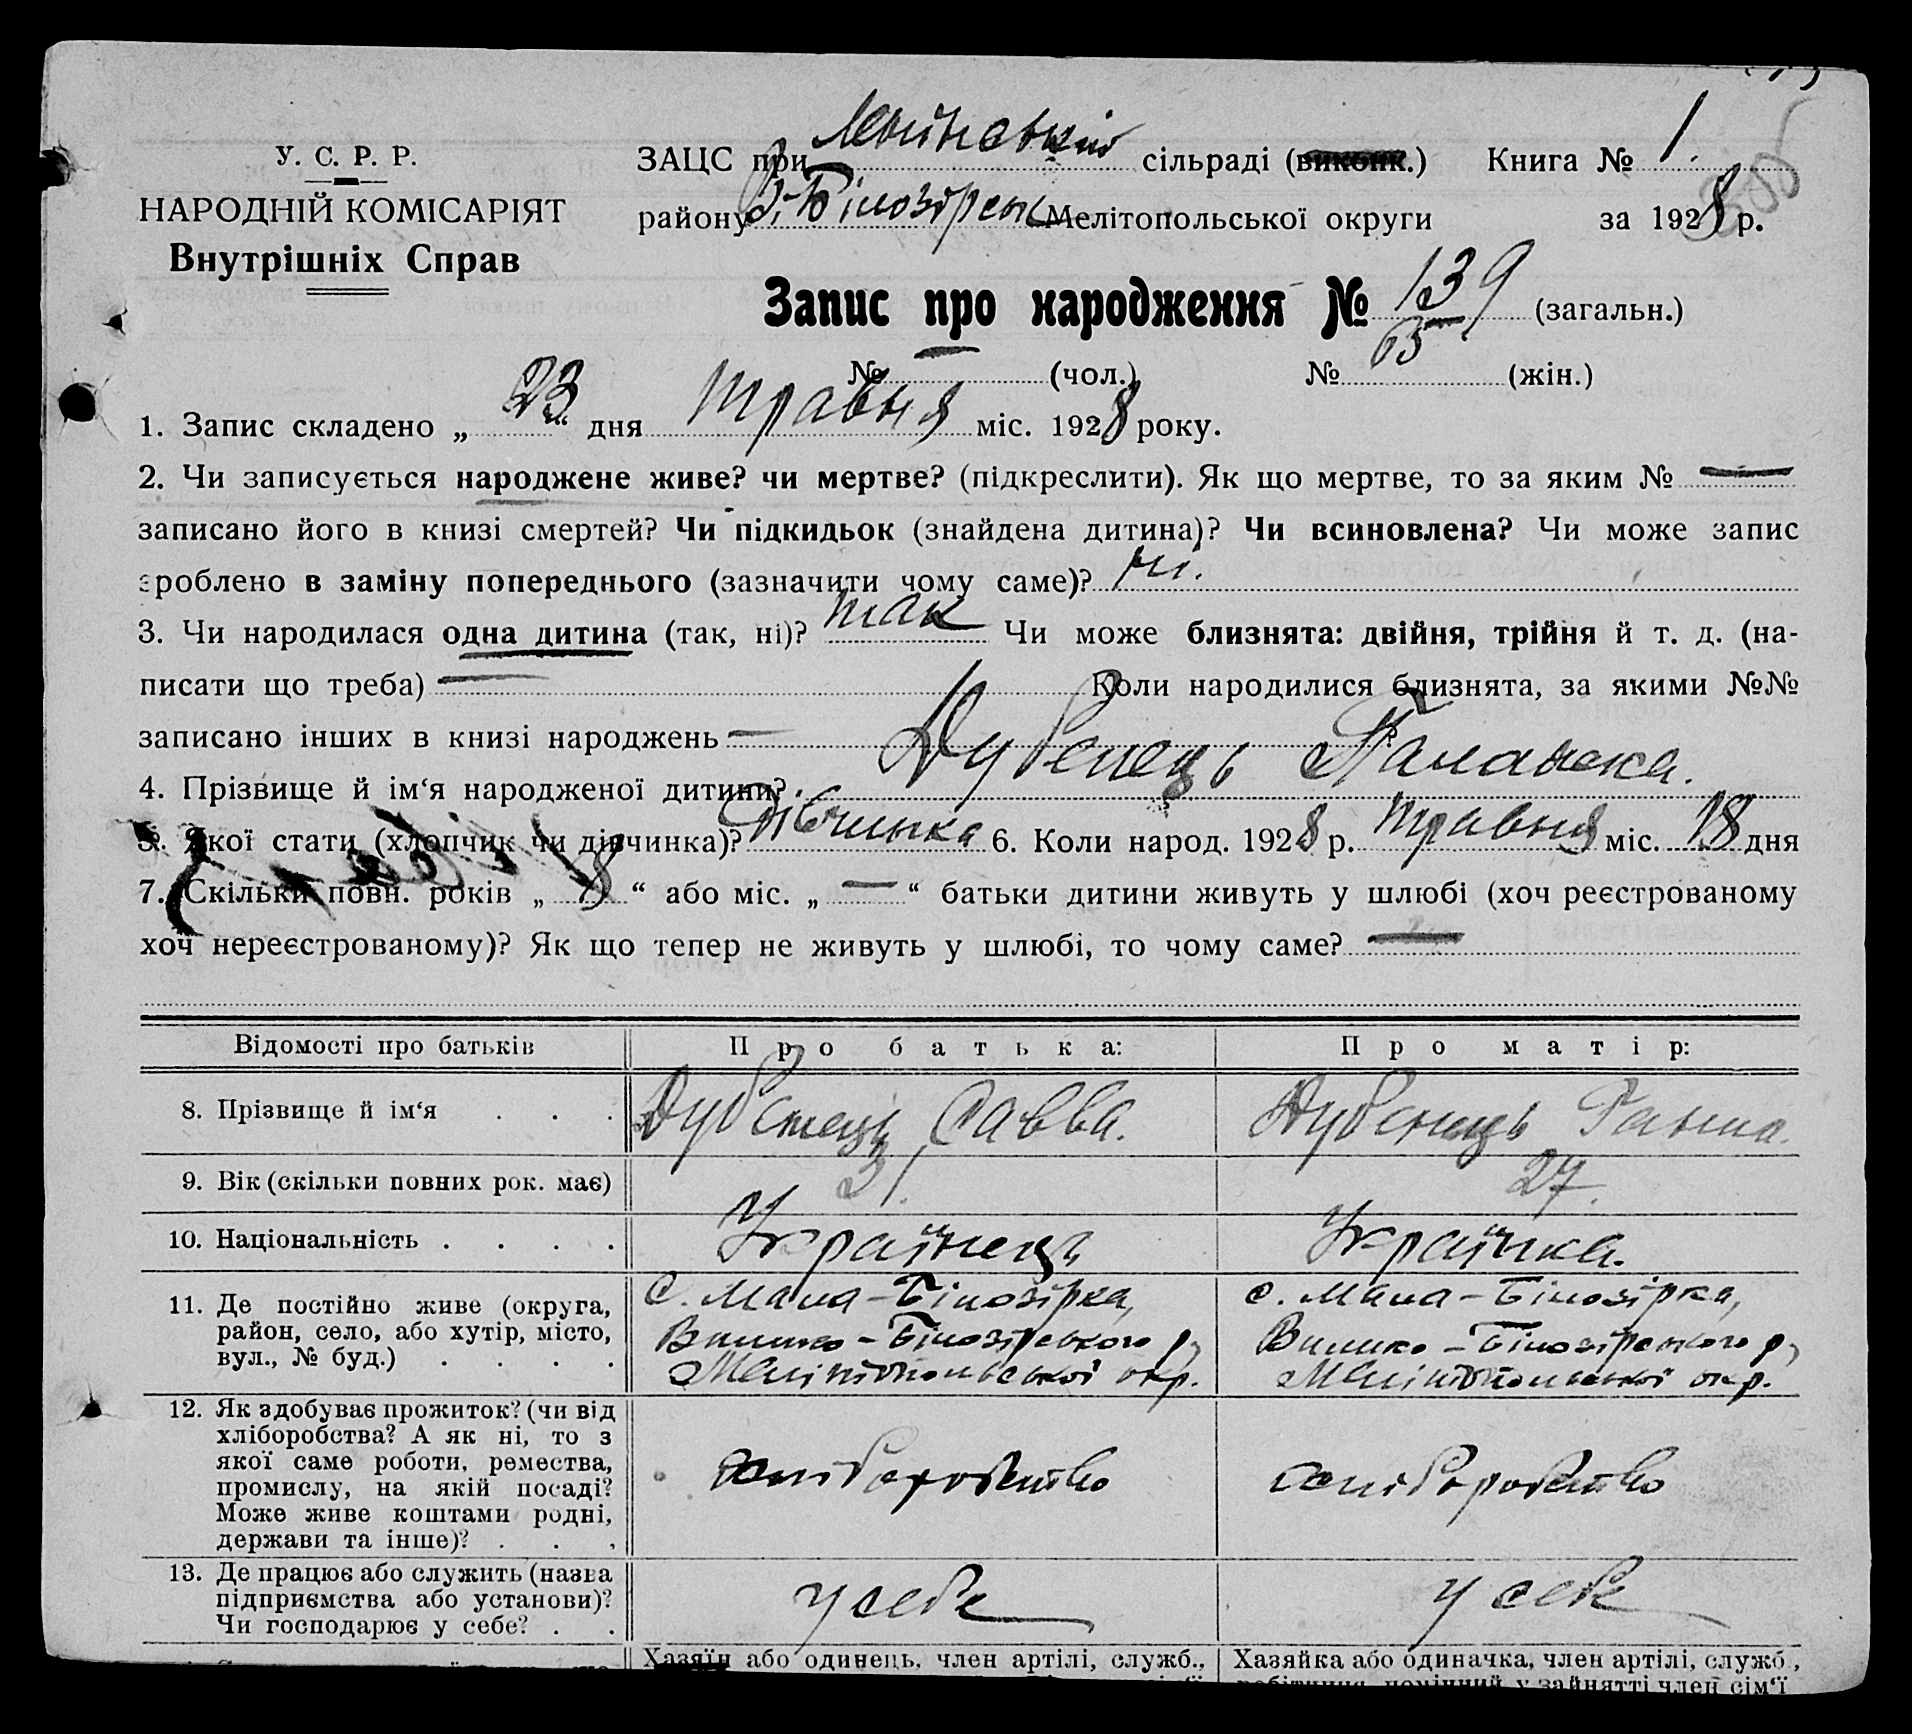 У. С. Р. Р.
НАРОДНІЙ КОМІСАРІЯТ
Внутрішніх Справ
ЗАЦС при сільраді (виконк.) Книга № 1.
району В-Білозірськ Мелітопольської округи за 1928 р.
Запис про народження № 139 (загальн.)
№ — (чол.) № 65 (жін.)
1. Запис складено „ 23 “ дня травня міс. 1928 року.
2. Чи записується народжене живе? чи мертве? (підкреслити). Як що мертве, то за яким № —
записано його в книзі смертей? Чи підкидьок (знайдена дитина)? Чи всиновлена? Чи може запис
зроблено в заміну попереднього (зазначити чому саме)? ні.
3. Чи народилася одна дитина (так, ні)? так Чи може близнята: двійня, трійня й т. д. (на-
писати що треба) — Коли народилися близнята, за якими №№
записано інших в книзі народжень —
4. Прізвище й ім‘я народженої дитини? Дубенець Палажка.
5. Якої стати (хлопчик чи дівчинка)? Дівчинка 6. Коли народ. 1928 р. травня міс. 18 дня
7. Скільки повн. років „ 8 “ або міс. „ — “ батьки дитини живуть у шлюбі (хоч реєстрованому
хоч нереєстрованому)? Як що тепер не живуть у шлюбі, то чому саме? —
Відомості про батьків Про батька: Про матір:
8. Прізвище й ім‘я . . . Дубенець Савва. Дубенець Ганна.
9. Вік (скільки повних рок. має) 31. 27.
10. Національність . . . . Українець Українка.
11. Де постійно живе (округа, с. Мала-Білозірка, с. Мала-Білозірка,
район, село, або хутір, місто, Велико-Білозірського р, Велико-Білозірського р,
вул., № буд.) . . . . Мелітопольської окр. Мелітопольської окр.
12. Як здобуває прожиток? (чи від
хліборобства? А як ні, то з
якої саме роботи, ремества, хліборобство хліборобство
промислу, на якій посаді?
Може живе коштами родні,
держави та інше)? . . .
13. Де працює або служить (назва
підприємства або установи)? у себе у себе
Чи господарює у себе? . .
Хазяїн або одинець, член артілі, служб., Хазяйка або одиначка, член артілі, служб.,